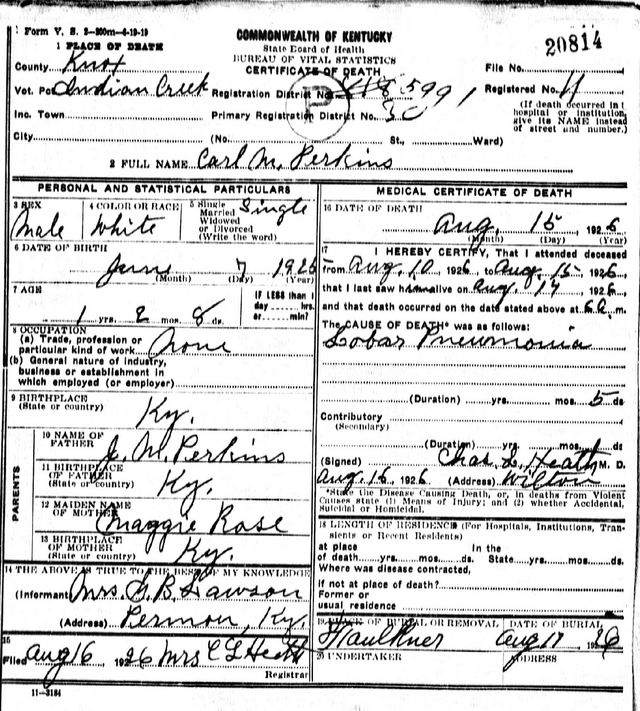 Form V. S. 2-200m-6-19-19
COMMONWEALTH OF KENTUCKY
State Board of Health
BUREAU OF VITAL STATISTICS
CERTIFICATE OF DEATH
20814
1 PLACE OF DEATH
County Knox
File No.
Vot. Pct Indian Creek Registration District No. Registered No. 11
Inc. Town Primary Registration District No. 30
(If death occurred in a hospital or institution, give its NAME instead of street and number.)
P
City (No. St., Ward)
2 FULL NAME Carl M. Perkins
PERSONAL AND STATISTICAL PARTICULARS
3 SEX Male
4 COLOR OR RACE White
5 Single Married Widowed or Divorced (Write the word) Single
6 DATE OF BIRTH
June 7 1925
(Month) (Day) (Year)
7 AGE
IF LESS than 1 day hrs. or min?
1 yrs. 2 mos. 8 ds.
8 OCCUPATION
(a) Trade, profession or particular kind of work None
(b) General nature of industry, business or establishment in which employed (or employer)
9 BIRTHPLACE
(State or country) Ky.
PARENTS
10 NAME OF FATHER J. M. Perkins
11 BIRTHPLACE OF FATHER (State or country) Ky.
12 MAIDEN NAME OF MOTHER Maggie Rose
13 BIRTHPLACE OF MOTHER (State or country) Ky.
14 THE ABOVE IS TRUE TO THE BEST OF MY KNOWLEDGE
(Informant Mrs. J. B. Lawson
(Address) Permon, Ky.
15
Filed Aug 16 1926 Mrs C L Heath
Registrar
11-3184
MEDICAL CERTIFICATE OF DEATH
16 DATE OF DEATH
Aug. 15, 1926
(Month) (Day) (Year)
17 I HEREBY CERTIFY, That I attended deceased
from Aug. 10, 1926, to Aug. 15, 1926,
that I last saw him alive on Aug. 14, 1926,
and that death occurred on the date stated above at 6 a. m.
The CAUSE OF DEATH* was as follows:
Lobar Pneumonia
(Duration) yrs. mos. 5 ds
Contributory
(Secondary)
(Duration) yrs. mos. ds
(Signed) Chas. L. Heath M. D.
Aug. 16, 1926 (Address) Wilton
*State the Disease Causing Death, or, in deaths from Violent
Causes state (1) Means of Injury; and (2) whether Accidental,
Suicidal or Homicidal.
18 LENGTH OF RESIDENCE (For Hospitals, Institutions, Transients or Recent Residents)
at place In the
of death yrs. mos. ds. State yrs. mos. ds.
Where was disease contracted,
if not at place of death?
Former or
usual residence
19 PLACE OF BURIAL OR REMOVAL DATE OF BURIAL
Faulkner Aug 17 1926
20 UNDERTAKER ADDRESS